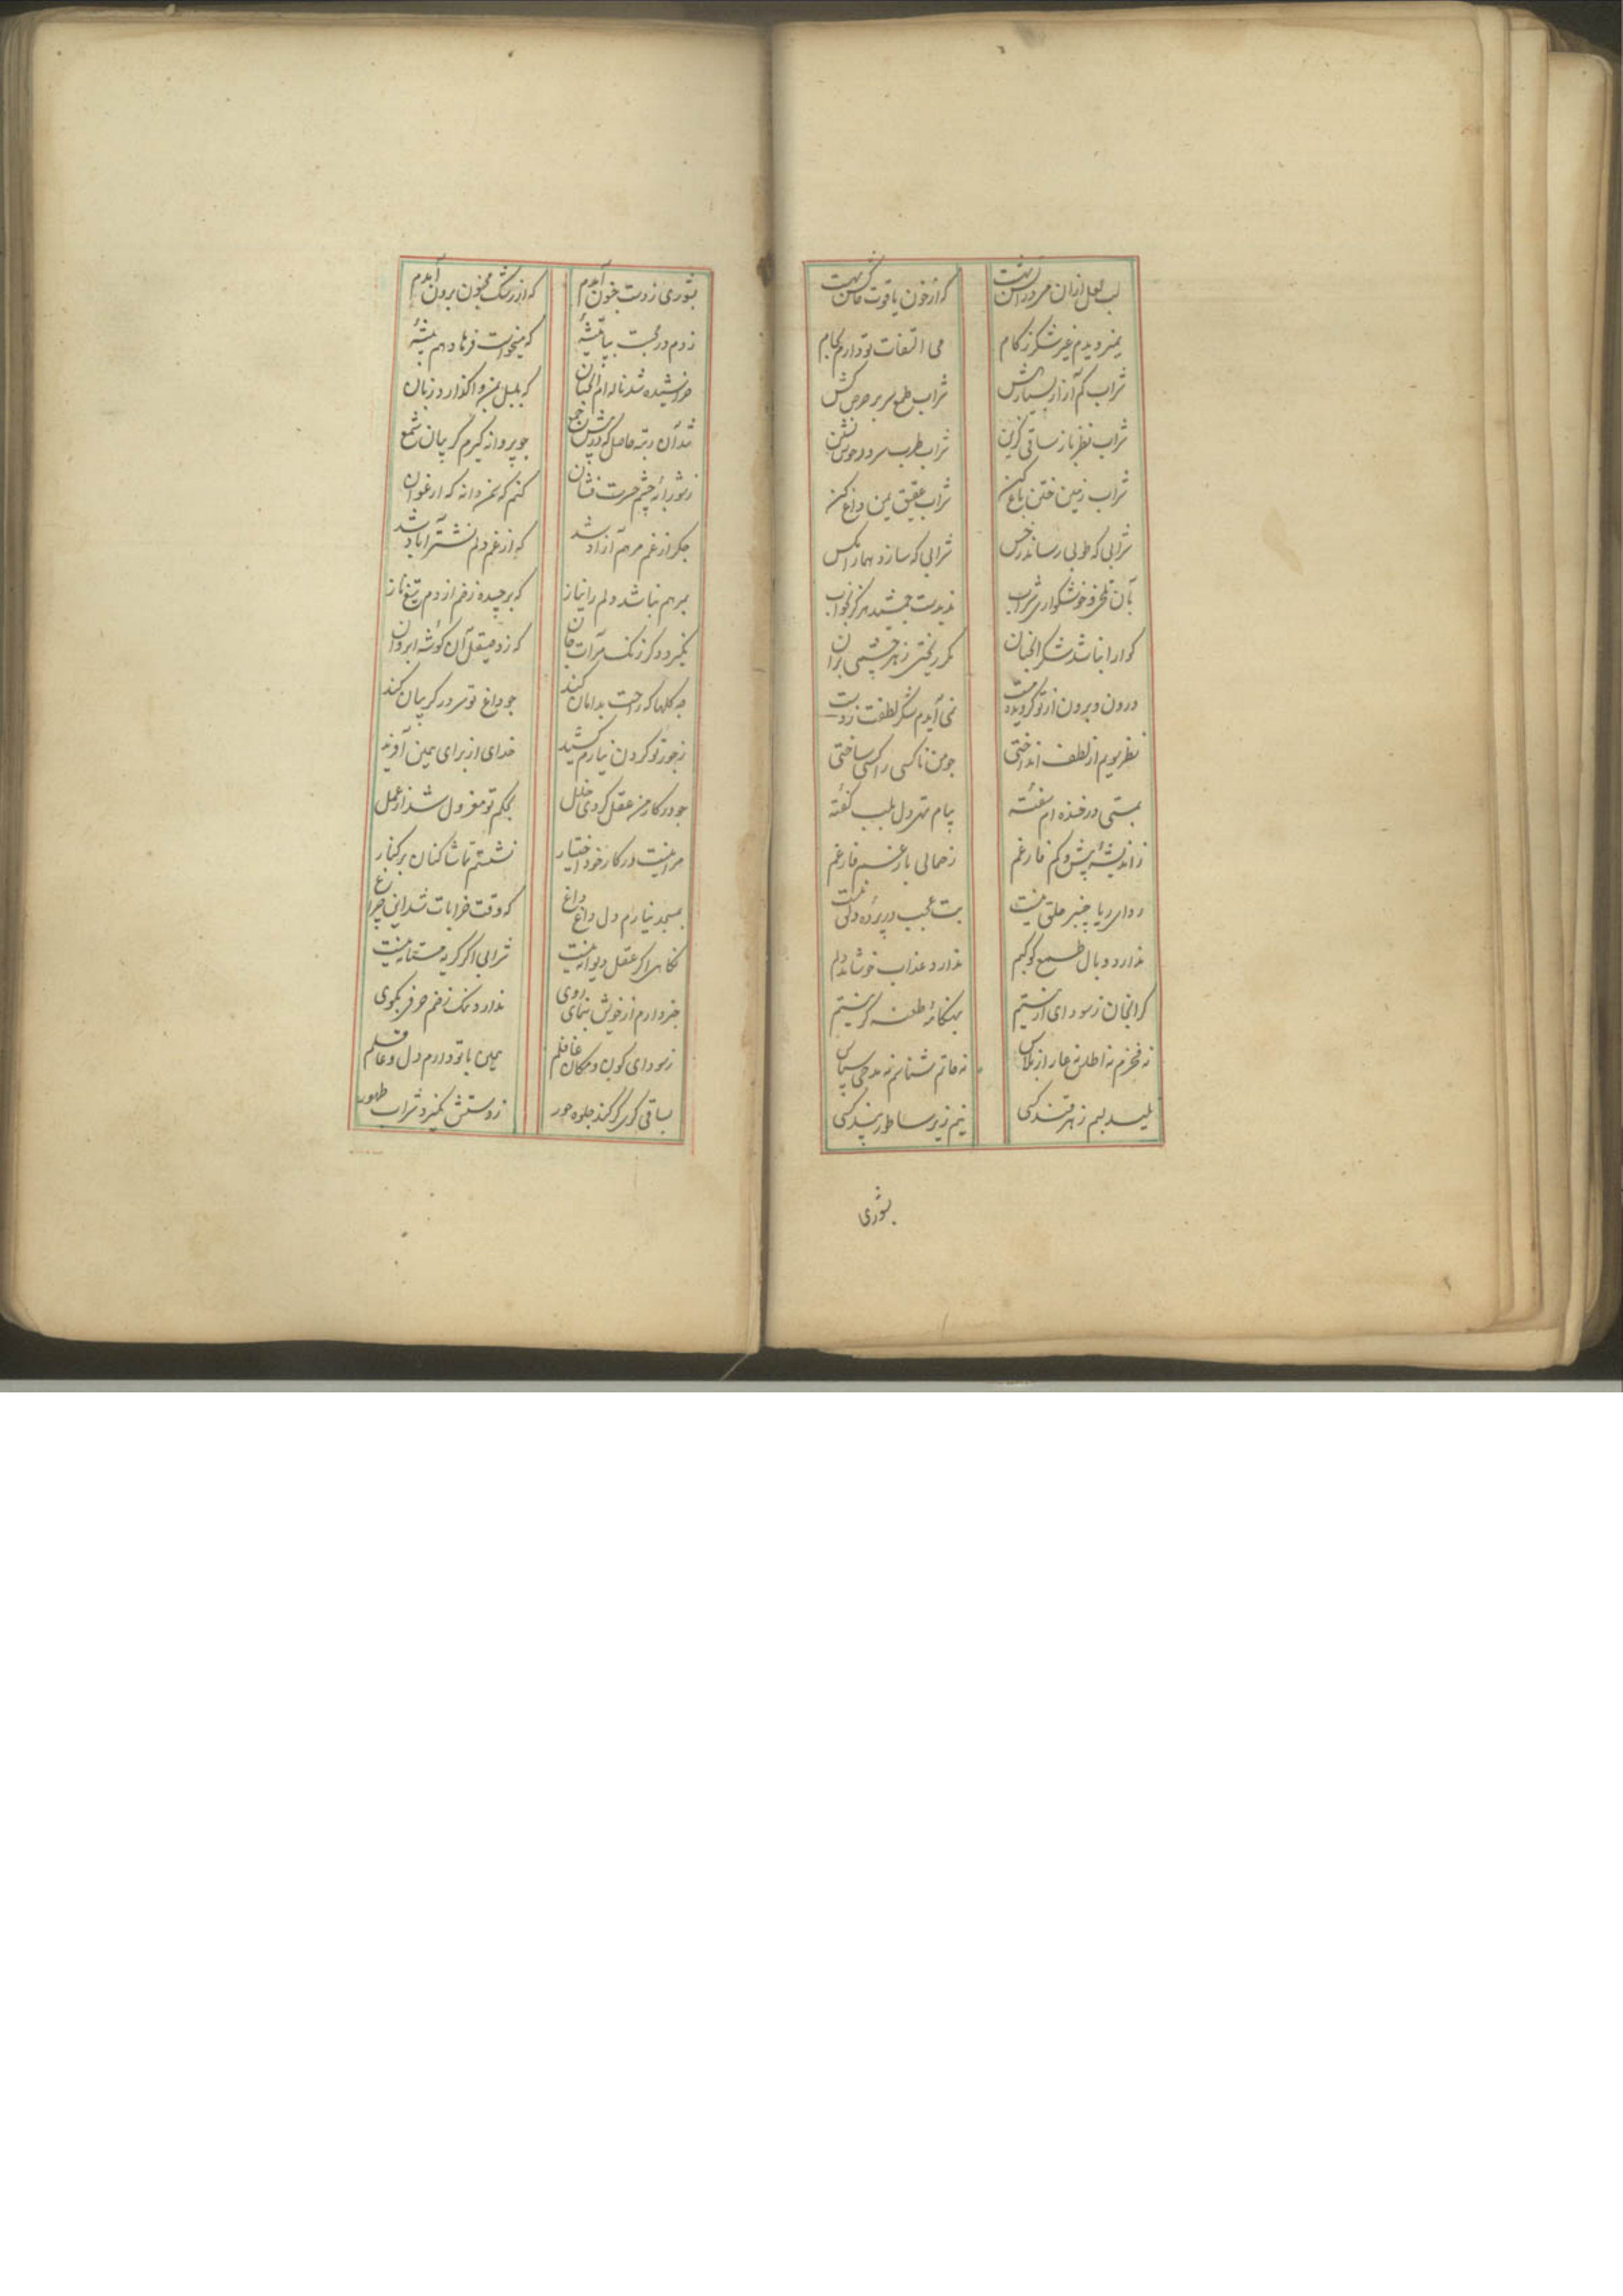 لب لعل ازان مرود
که از خون یاقوت
نمیرویدم غیر شکر ز کام می التفات تو دارم بجام
شراب کم آزار بسیارش شراب طمع سر بر حرص کش
شراب نظر باز ساقی گزین شراب طرب سرود
شراب زمین ختن باغ کن شراب عقیق یمن داغ کن
شرابی که طوبی رساند ز خس شرابی که سازد هما از مکس
بآن تلخی و خوشکواری شراب ندیدست جمشید هرگز بخواب
کوارا نباشد شکر انچنان مکر ریختی زهر چشمی بران
درون و برون از تو کرویده مست نمی آیدم شکر لطفت ز دست
نظر بویم از لطف انداختی جو من ناکسی را کسی ساختی
بمستی در خنده ام سفته پیام دل بلب کفته
ز اندیشه بیش و کم فارغم ز حمالی بار غم فارغم
ردای ریا چنبر حلق نیست بت عجب در پرده دلق نیست
ندارد وبال طمع کوکبم ندارد عذاب خوشامد لبم
کرانجان ز سودای ارزنیستم بهنکامه طعنه کر نیستم
نه فخرم به اطلس نه عار از پلاس نه حاتم شناسم نه مدحی سپاس
لبم ز هر قند کسی نیم زیر ساطور پند کسی
بشوری
بشوری ز دست خون آمدم که از رشک مجنون برون آمدم
زدم در محبت بپا تیشه که میخواست فرهاد هم تیشه
خراشیده شد ناله ام انچنان که بلبل بمن واکذارد زبان
شد آن رتبه حاصل که در پیش جمع جو پروانه کیرم کریبان شمع
ز شورابه چشم حسرت فشان کنم دانه که ارغوان
جکر از غم مرهم آزاد شد که از غم دلم نشترآباد شد
بمرهم نباشد دلم را نیاز که برچیده زخم از دم تیغ ناز
نکیرد دکر زنک مرآت جان که زد صیقل آن کوشه ابروان
چه کلها که راحت بدامان کند جو داغ تو سر در کریبان کند
ز جور تو کردن نیارم کشید خدای از برای همین آفرید
جو در کار من عقل کردی خلل بحکم تو معزول شد از عمل
مرا نیست در کار خود اختیار نشستم تماشا کنان بر کنار
بمسجد نیارم دل داغ داغ که وقت خرابات شد این چراغ
نکاهی اکر عقل دیوانه نیست شرابی اکر کریه مستانه نیست
خبر دارم از خویش بنمای روی ندارد نمک زخم حرفی بکوی
ز سودای کون و مکان غافلم همین با تو دارم دل و عاقلم
بساقی کوی کو کند جلوه حور ز دستش نکیرد شراب طهور